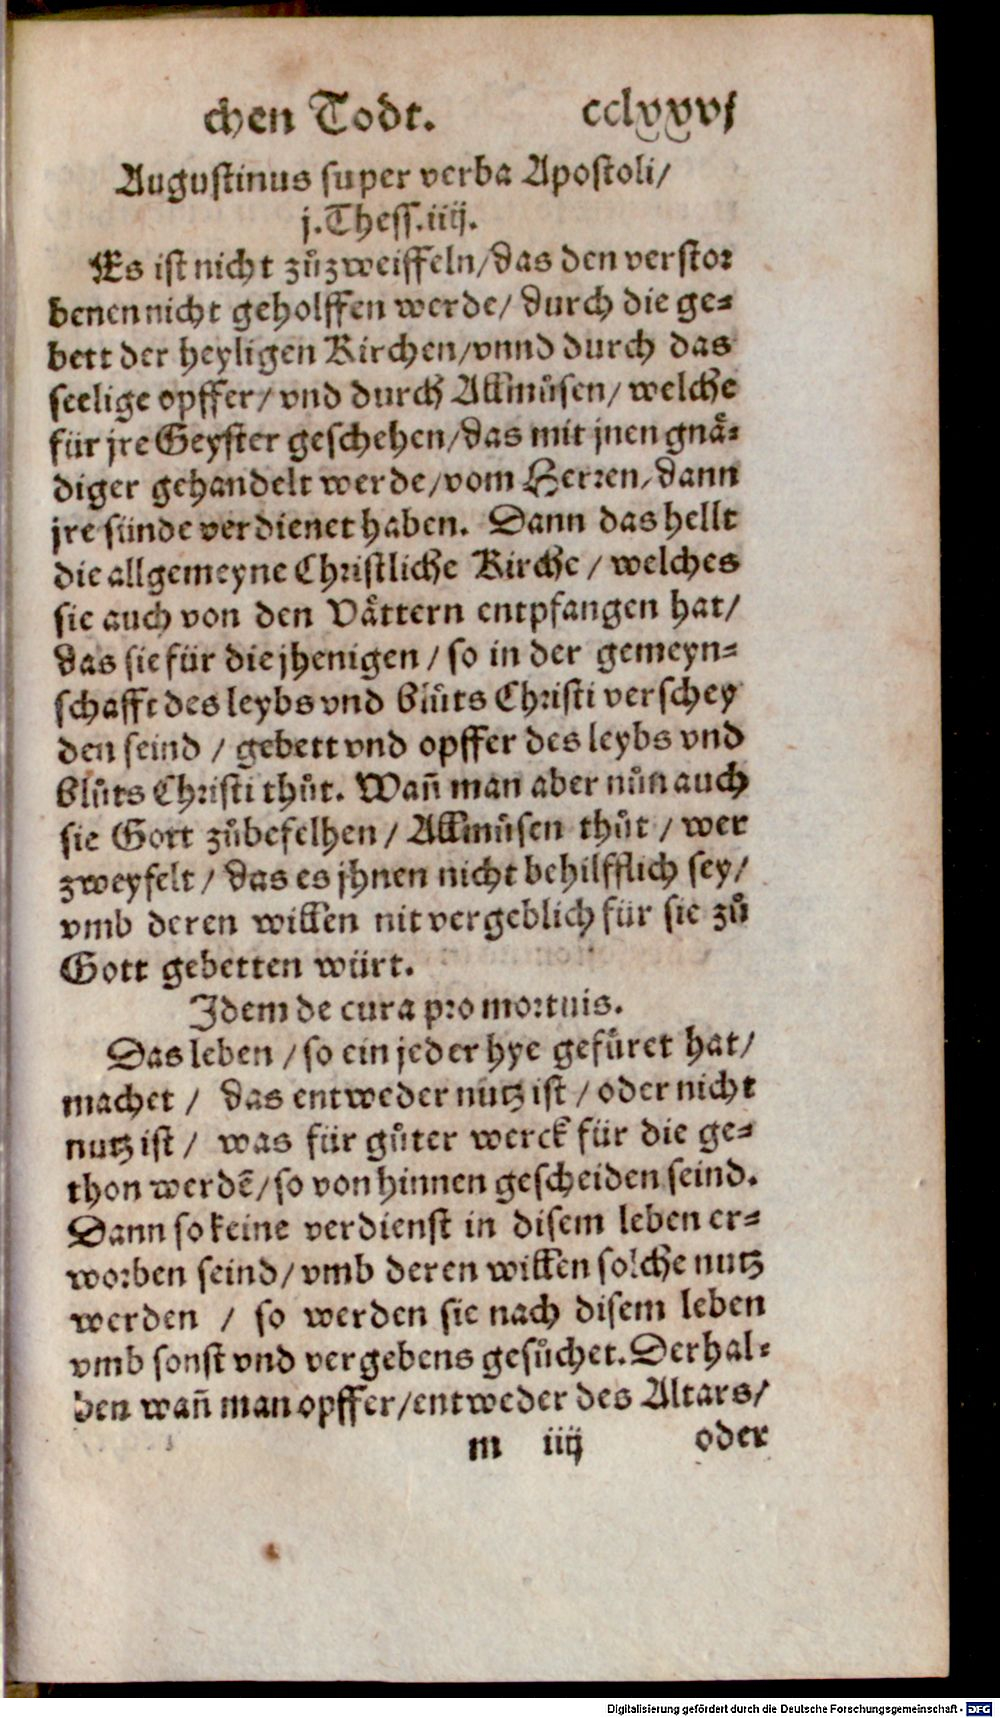 chen Todt. cclxxvj
Augustinus super verba Apostoli/
j. Thess. iiij.
Es ist nicht zůzweiffeln/ das den verstor
benen nicht geholffen werde/ durch die ge-
bett der heyligen Kirchen/ vnnd durch das
seelige opffer/ vnd durch Allmůsen/ welche
für jre Geyster geschehen/ das mit jnen gnå-
diger gehandelt werde/ vom Herren/ dann
jre sünde verdienet haben. Dann das hellt
die allgemeyne Christliche Kirche / welches
sie auch von den Våttern entpfangen hat/
das sie für die jhenigen / so in der gemeyn-
schafft des leybs vnd blůts Christi verschey
den seind / gebett vnd opffer des leybs vnd
blůts Christi thůt. Wann̄ man aber nůn auch
sie Gott zůbefelhen / Allmůsen thůt / wer
zweyfelt / das es jhnen nicht behilfflich sey/
vmb deren willen nit vergeblich für sie zů
Gott gebetten würt.
Idem de cura pro mortuis.
Das leben / so ein jeder hye gefůret hat/
machet / das entweder nutz ist / oder nicht
nutz ist / was für gůter werck für die ge-
thon werdē/ so von hinnen gescheiden seind.
Dann so keine verdienst in disem leben er-
worben seind/ vmb deren willen solche nutz
werden / so werden sie nach disem leben
vmb sonst vnd vergebens gesůchet. Derhal-
ben wan̄ man opffer/ entweder des Altars/
m iiij oder
Digitalisierung gefördert durch die Deutsche Forschungsgemeinschaft - DFG